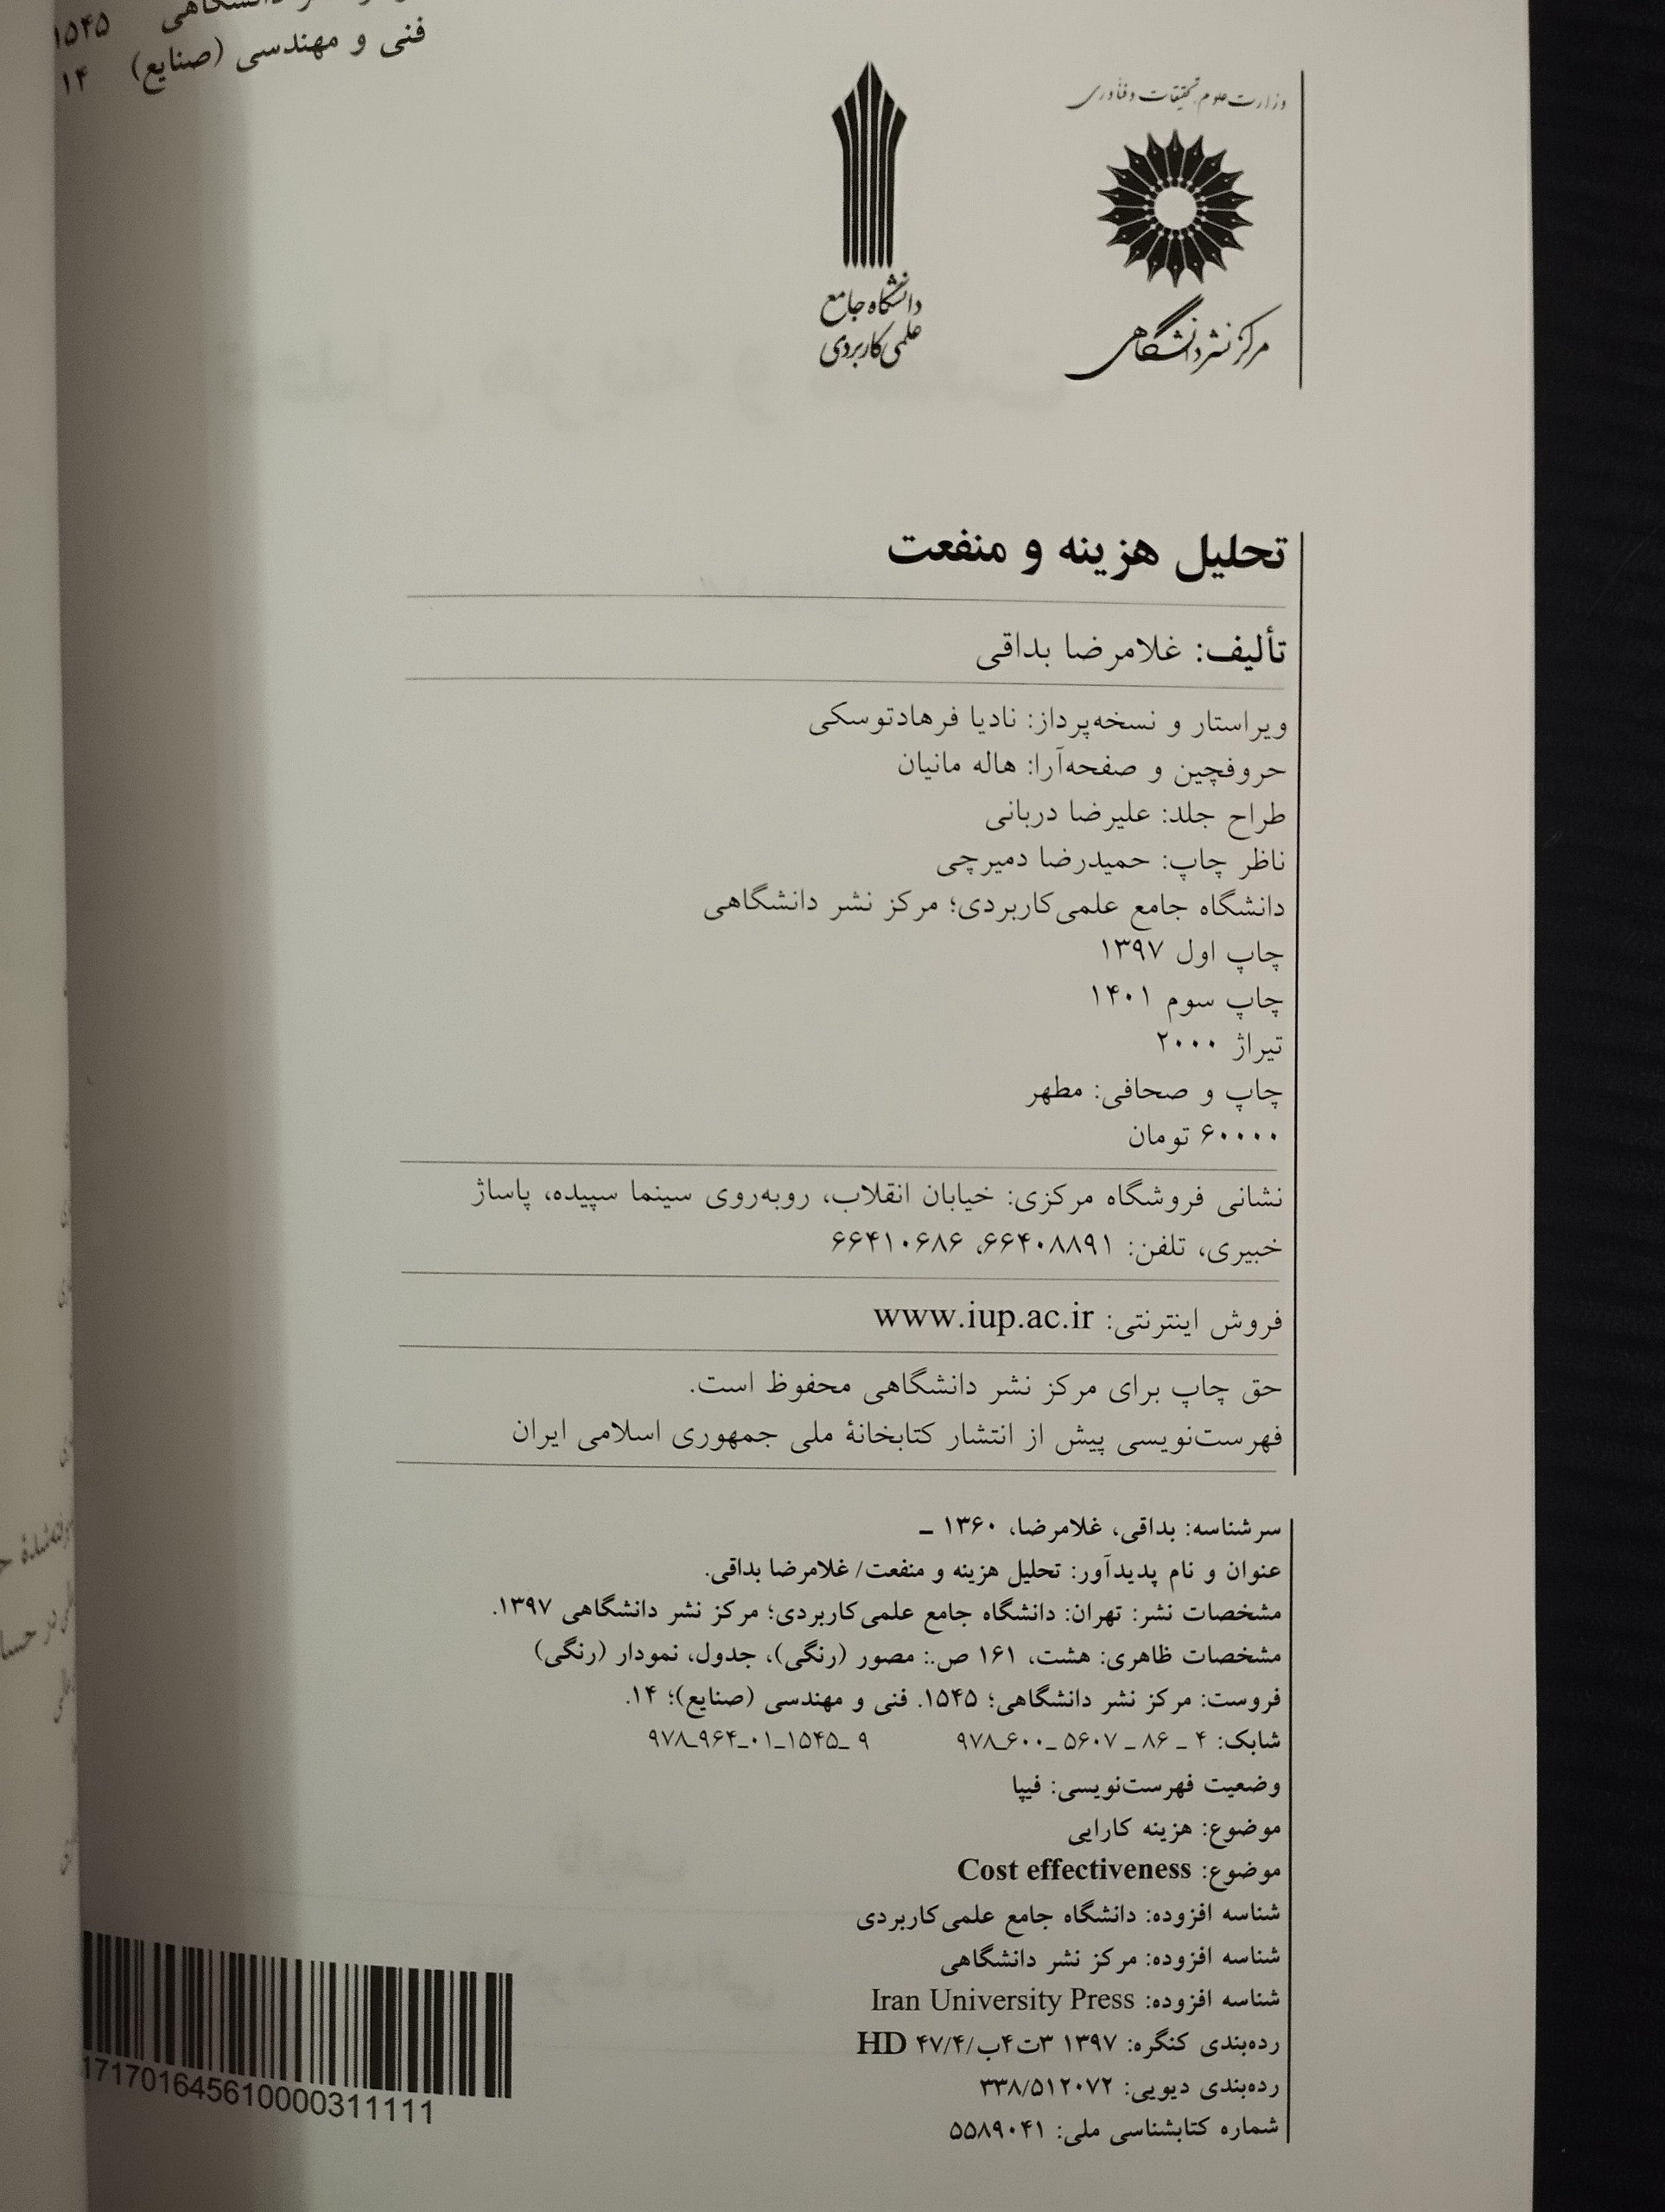 ۱۵۴۵
فنی و مهندسی (صنایع) ۱۴
وزارت علوم، تحقیقات و فناوری
مرکز نشر دانشگاهی
دانشگاه جامع
علمی کاربردی
تحلیل هزینه و منفعت
تألیف: غلامرضا بداقی
ویراستار و نسخه‌پرداز: نادیا فرهادتوسکی
حروفچین و صفحه‌آرا: هاله مانیان
طراح جلد: علیرضا دربانی
ناظر چاپ: حمیدرضا دمیرچی
دانشگاه جامع علمی‌کاربردی؛ مرکز نشر دانشگاهی
چاپ اول ۱۳۹۷
چاپ سوم ۱۴۰۱
تیراژ ۲۰۰۰
چاپ و صحافی: مطهر
۶۰۰۰۰ تومان
نشانی فروشگاه مرکزی: خیابان انقلاب، روبه‌روی سینما سپیده، پاساژ
خبیری، تلفن: ۶۶۴۰۸۸۹۱، ۶۶۴۱۰۶۸۶
فروش اینترنتی: www.iup.ac.ir
حق چاپ برای مرکز نشر دانشگاهی محفوظ است.
فهرست‌نویسی پیش از انتشار کتابخانهٔ ملی جمهوری اسلامی ایران
سرشناسه: بداقی، غلامرضا، ۱۳۶۰ ـ
عنوان و نام پدیدآور: تحلیل هزینه و منفعت/ غلامرضا بداقی.
مشخصات نشر: تهران: دانشگاه جامع علمی‌کاربردی؛ مرکز نشر دانشگاهی ۱۳۹۷.
مشخصات ظاهری: هشت، ۱۶۱ ص.: مصور (رنگی)، جدول، نمودار (رنگی)
فروست: مرکز نشر دانشگاهی؛ ۱۵۴۵. فنی و مهندسی (صنایع)؛ ۱۴.
شابک: ۴ ـ ۸۶ ـ ۵۶۰۷ ـ۶۰۰ـ۹۷۸ ۹ ـ۱۵۴۵ـ۰۱ـ۹۶۴ـ۹۷۸
وضعیت فهرست‌نویسی: فیپا
موضوع: هزینه کارایی
موضوع: Cost effectiveness
شناسه افزوده: دانشگاه جامع علمی‌کاربردی
شناسه افزوده: مرکز نشر دانشگاهی
شناسه افزوده: Iran University Press
رده‌بندی کنگره: ۱۳۹۷ ۳ت۴ب/۴۷/۴ HD
رده‌بندی دیویی: ۳۳۸/۵۱۲۰۷۲
شماره کتابشناسی ملی: ۵۵۸۹۰۴۱
17170164561000031​1111